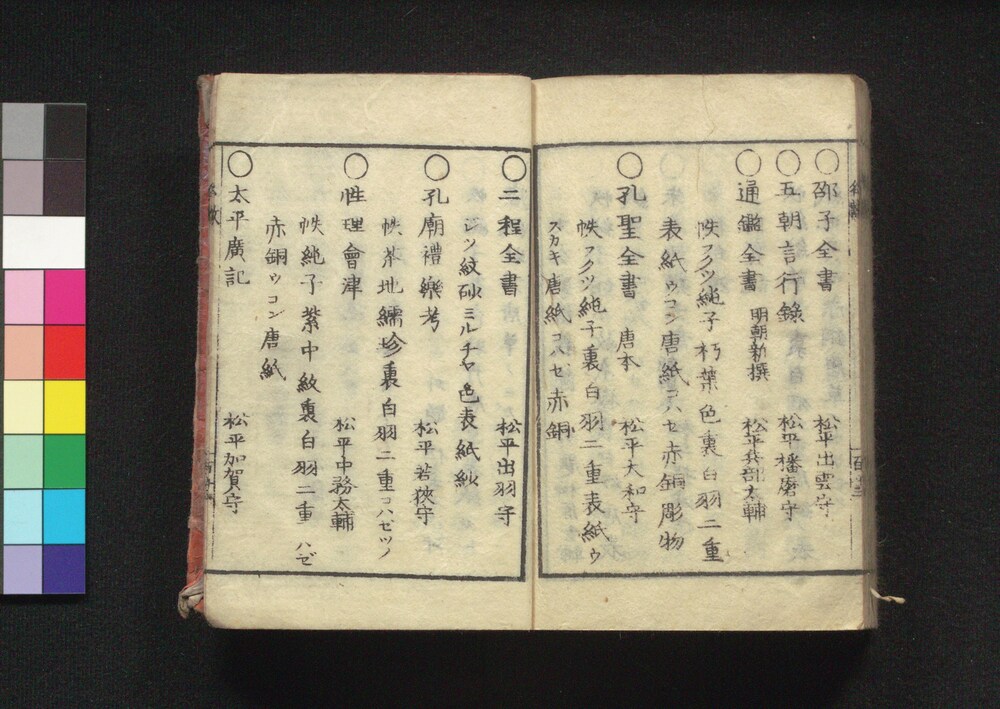 ○邵子全書 松平出雲守
○五朝言行錄 松平播磨守
○通鑑全書 明朝新撰 松平兵部太輔
帙フクツ純子朽葉色裏白羽二重
表紙ウコン唐紙コハセ赤銅彫物
○孔聖全書 唐本 松平大和守
帙フクツ純子裏白羽二重表紙ウ
スカキ唐紙コハセ赤銅
○二程全書 松平出羽守
シツ紋砂ミルチヤ色表紙
○孔廟禮樂考 松平若狹守
帙茶地繻珍裏白羽二重コハゼツノ
○性理會津 松平中務太輔
帙純子紫中紋裏白羽二重 ハゼ
赤銅ウコン唐紙
○太平廣記 松平加賀守